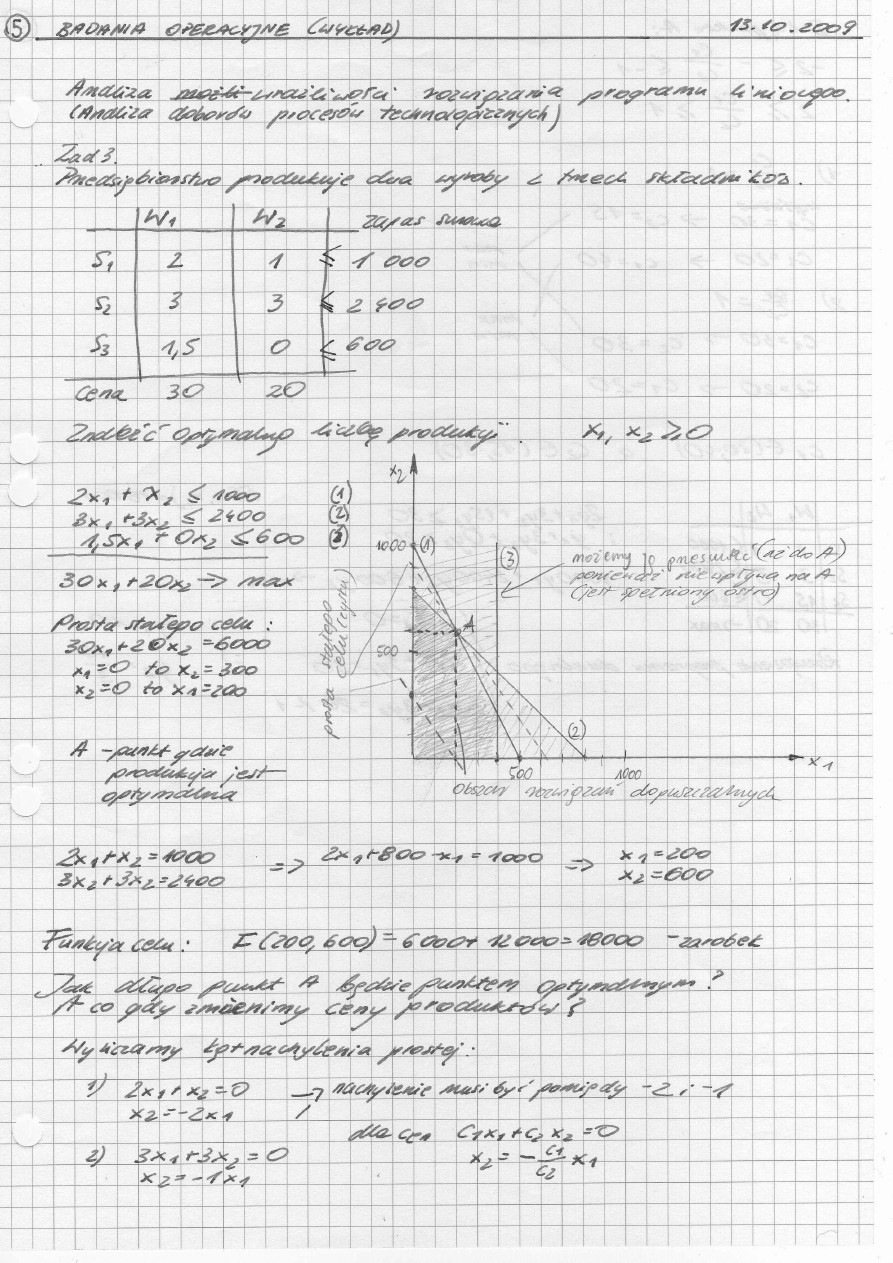 5 BADANIA OPERACYJNE (WYKŁAD) 13.10.2009
Analiza możli wrażliwości rozwiązania programu liniowego.
(Analiza doborów procesów technologicznych)
Zad 3.
Przedsiębiorstwo produkuje dwa wyroby z trzech składników.
W1 W2 zapas surowca
S1 2 1 ≤ 1 000
S2 3 3 ≤ 2 400
S3 1,5 0 ≤ 600
Cena 30 20
Znaleźć optymalną liczbę produkcji. x1, x2 ≥ 0
2x1 + x2 ≤ 1000 (1)
3x1 + 3x2 ≤ 2400 (2)
1,5x1 + 0x2 ≤ 600 (3)
30x1 + 20x2 -> max
Prosta stałego celu:
30x1 + 20x2 = 6000
x1=0 to x2=300
x2=0 to x1=200
A - punkt gdzie
produkcja jest
optymalna
x2
1000 (1)
(3)
możemy ją przesuwać (aż do A)
ponieważ nie wpływa na A
(jest spełniony ostro)
A
500
prosta stałego
celu (zysku)
(2)
500 1000 x1
Obszar rozwiązań dopuszczalnych
2x1+x2=1000 => 2x1+800-x1=1000 => x1=200
3x2+3x2=2400 x2=600
Funkcja celu: F(200,600)=6000+12000=18000 - zarobek
Jak długo punkt A będzie punktem optymalnym?
A co gdy zmienimy ceny produktów?
Wyliczamy kąt nachylenia prostej:
1) 2x1+x2=0 -> nachylenie musi być pomiędy -2 i -1
x2=-2x1
dla cen C1x1+C2x2=0
2) 3x1+3x2=0 x2=-C1/C2 x1
x2=-1x1